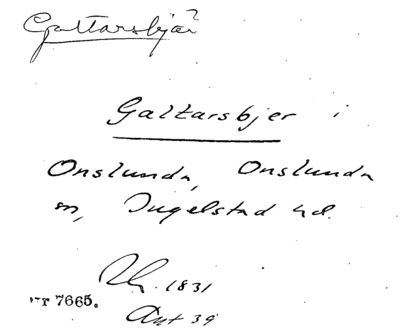 Galtarsbjär?
Galtarsbjer i
Onslunda, Onslunda
sn, Ingelstad hd.
Rh. 1831
nr 7665.
Ant 39